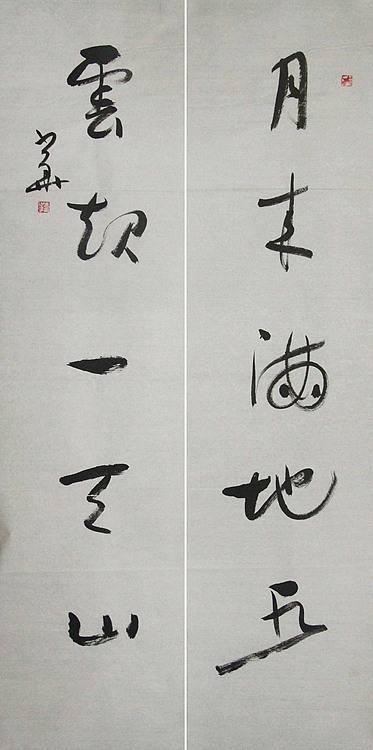 月来满地
雲起一天山